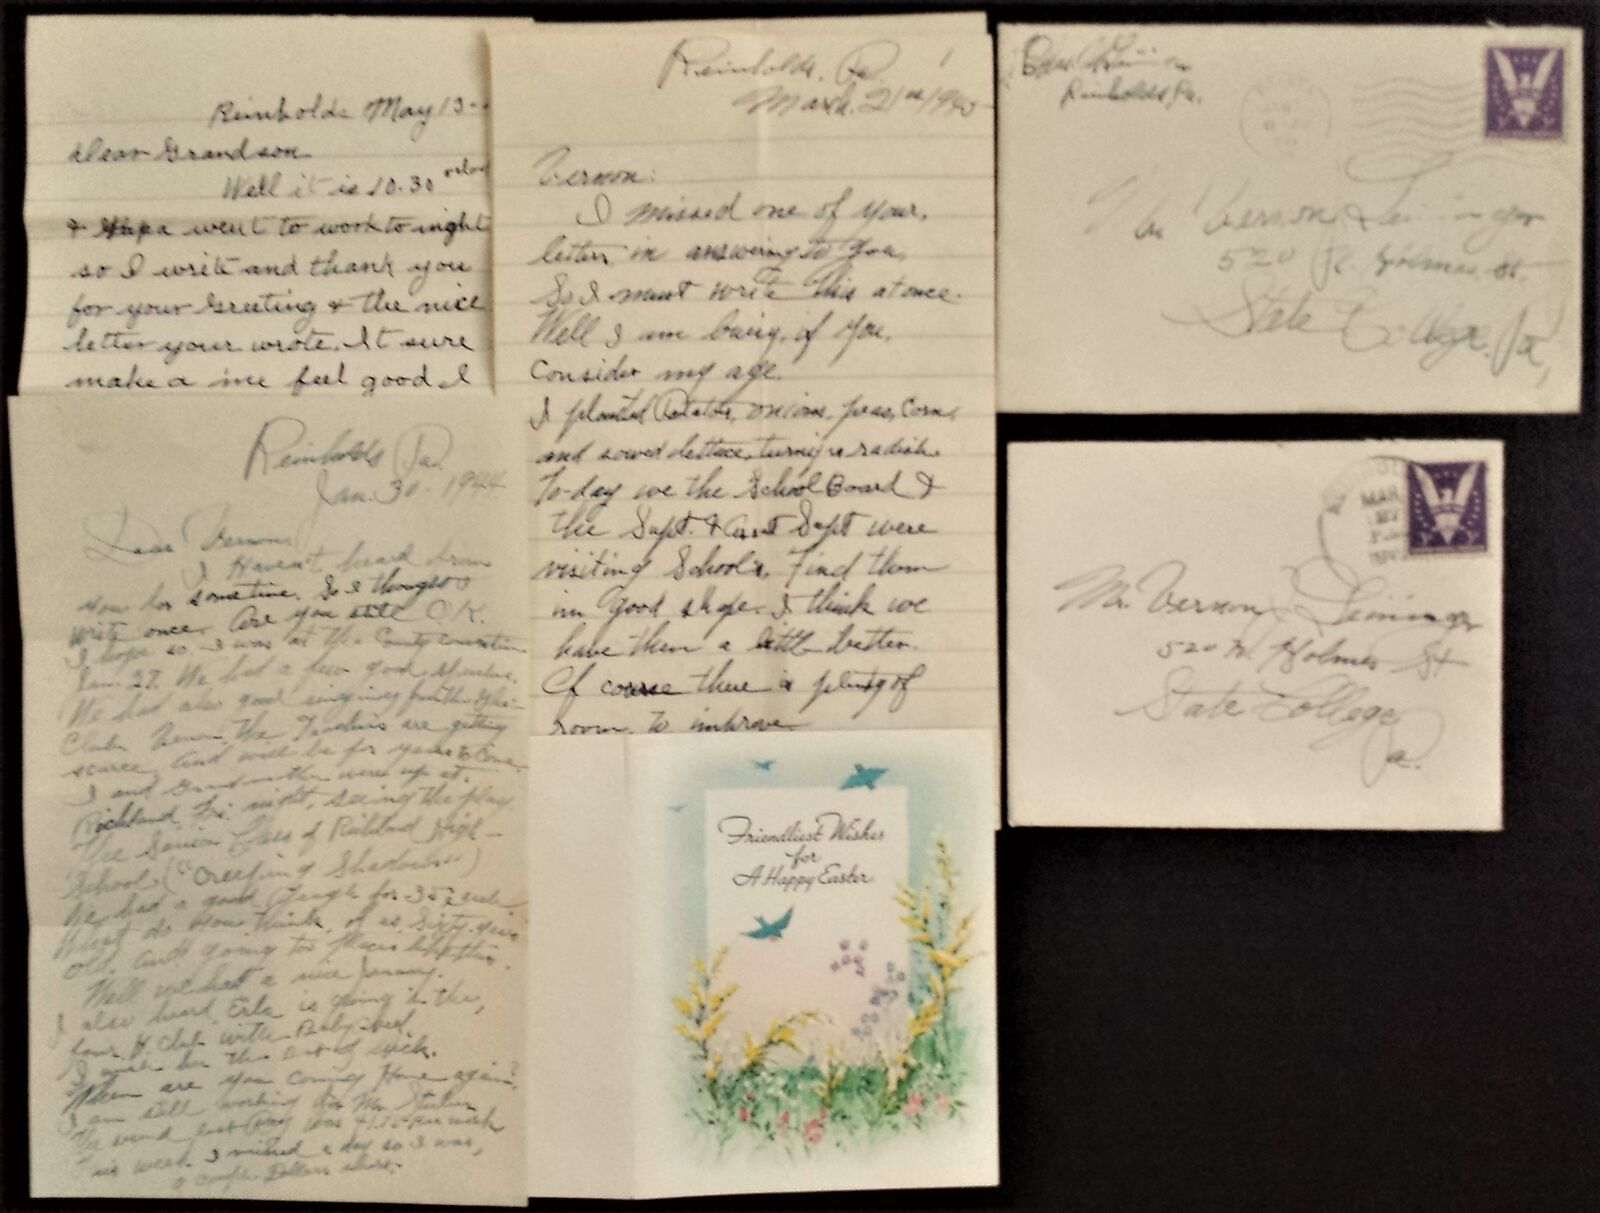 Reinholds May 13
Dear Grandson
Well it is 10.30
& Papa went to work to night
so I write and thank you
for your Greeting & the nice
letter your wrote. It sure
make a me feel good I
Reinholds, Pa.
March. 21st 1945
Vernon:
I missed one of your,
letter in answering to you,
So I must write this at once.
Well I am busy, if you,
Consider my age.
I planted Potatoes, onions, peas, Corn,
and sowed lettuce, turnip & radish.
To-day we the School Board &
the Supt. & Asst Supt were
visiting School's, Find them
in good shape. I think we
have them a little better.
Of course there is plenty of
room, to improve
Reinholds Pa.
Jan. 30. 1944
Dear Vernon,
I Haven't heard from
you for sometime. So I thought I
write once. Are you still O.K.
I hope so. I was at the County convention
Jan 27. We had a few good speeches.
We had also good singing from the Glee
Club. the Teachers are getting
scarce, And will be for years to Come.
I and Grandmother were up at.
Richland Fri. night, seeing the play.
The Senior Class of Richland High
School. ("Creeping Shadows")
We had a good laugh for 35¢ each
What do you think, of us Sixty years
old, and going to places like this.
Well we had a nice January.
I also heard Erla is going in the,
four H. Club with Baby beef.
I wish her the best of luck.
When are you coming Home again?
I am still working for Mr.
last Pay was 41.75 per week
This week I missed a day so I was,
a couple Dollars short.
Friendliest Wishes
for
A Happy Easter
Reinholds Pa.
Mr Vernon Leininger
520 N. Holmes St.
State College, Pa,
MAR
27
Mr. Vernon Leininger
520 N. Holmes St
State College
Pa.